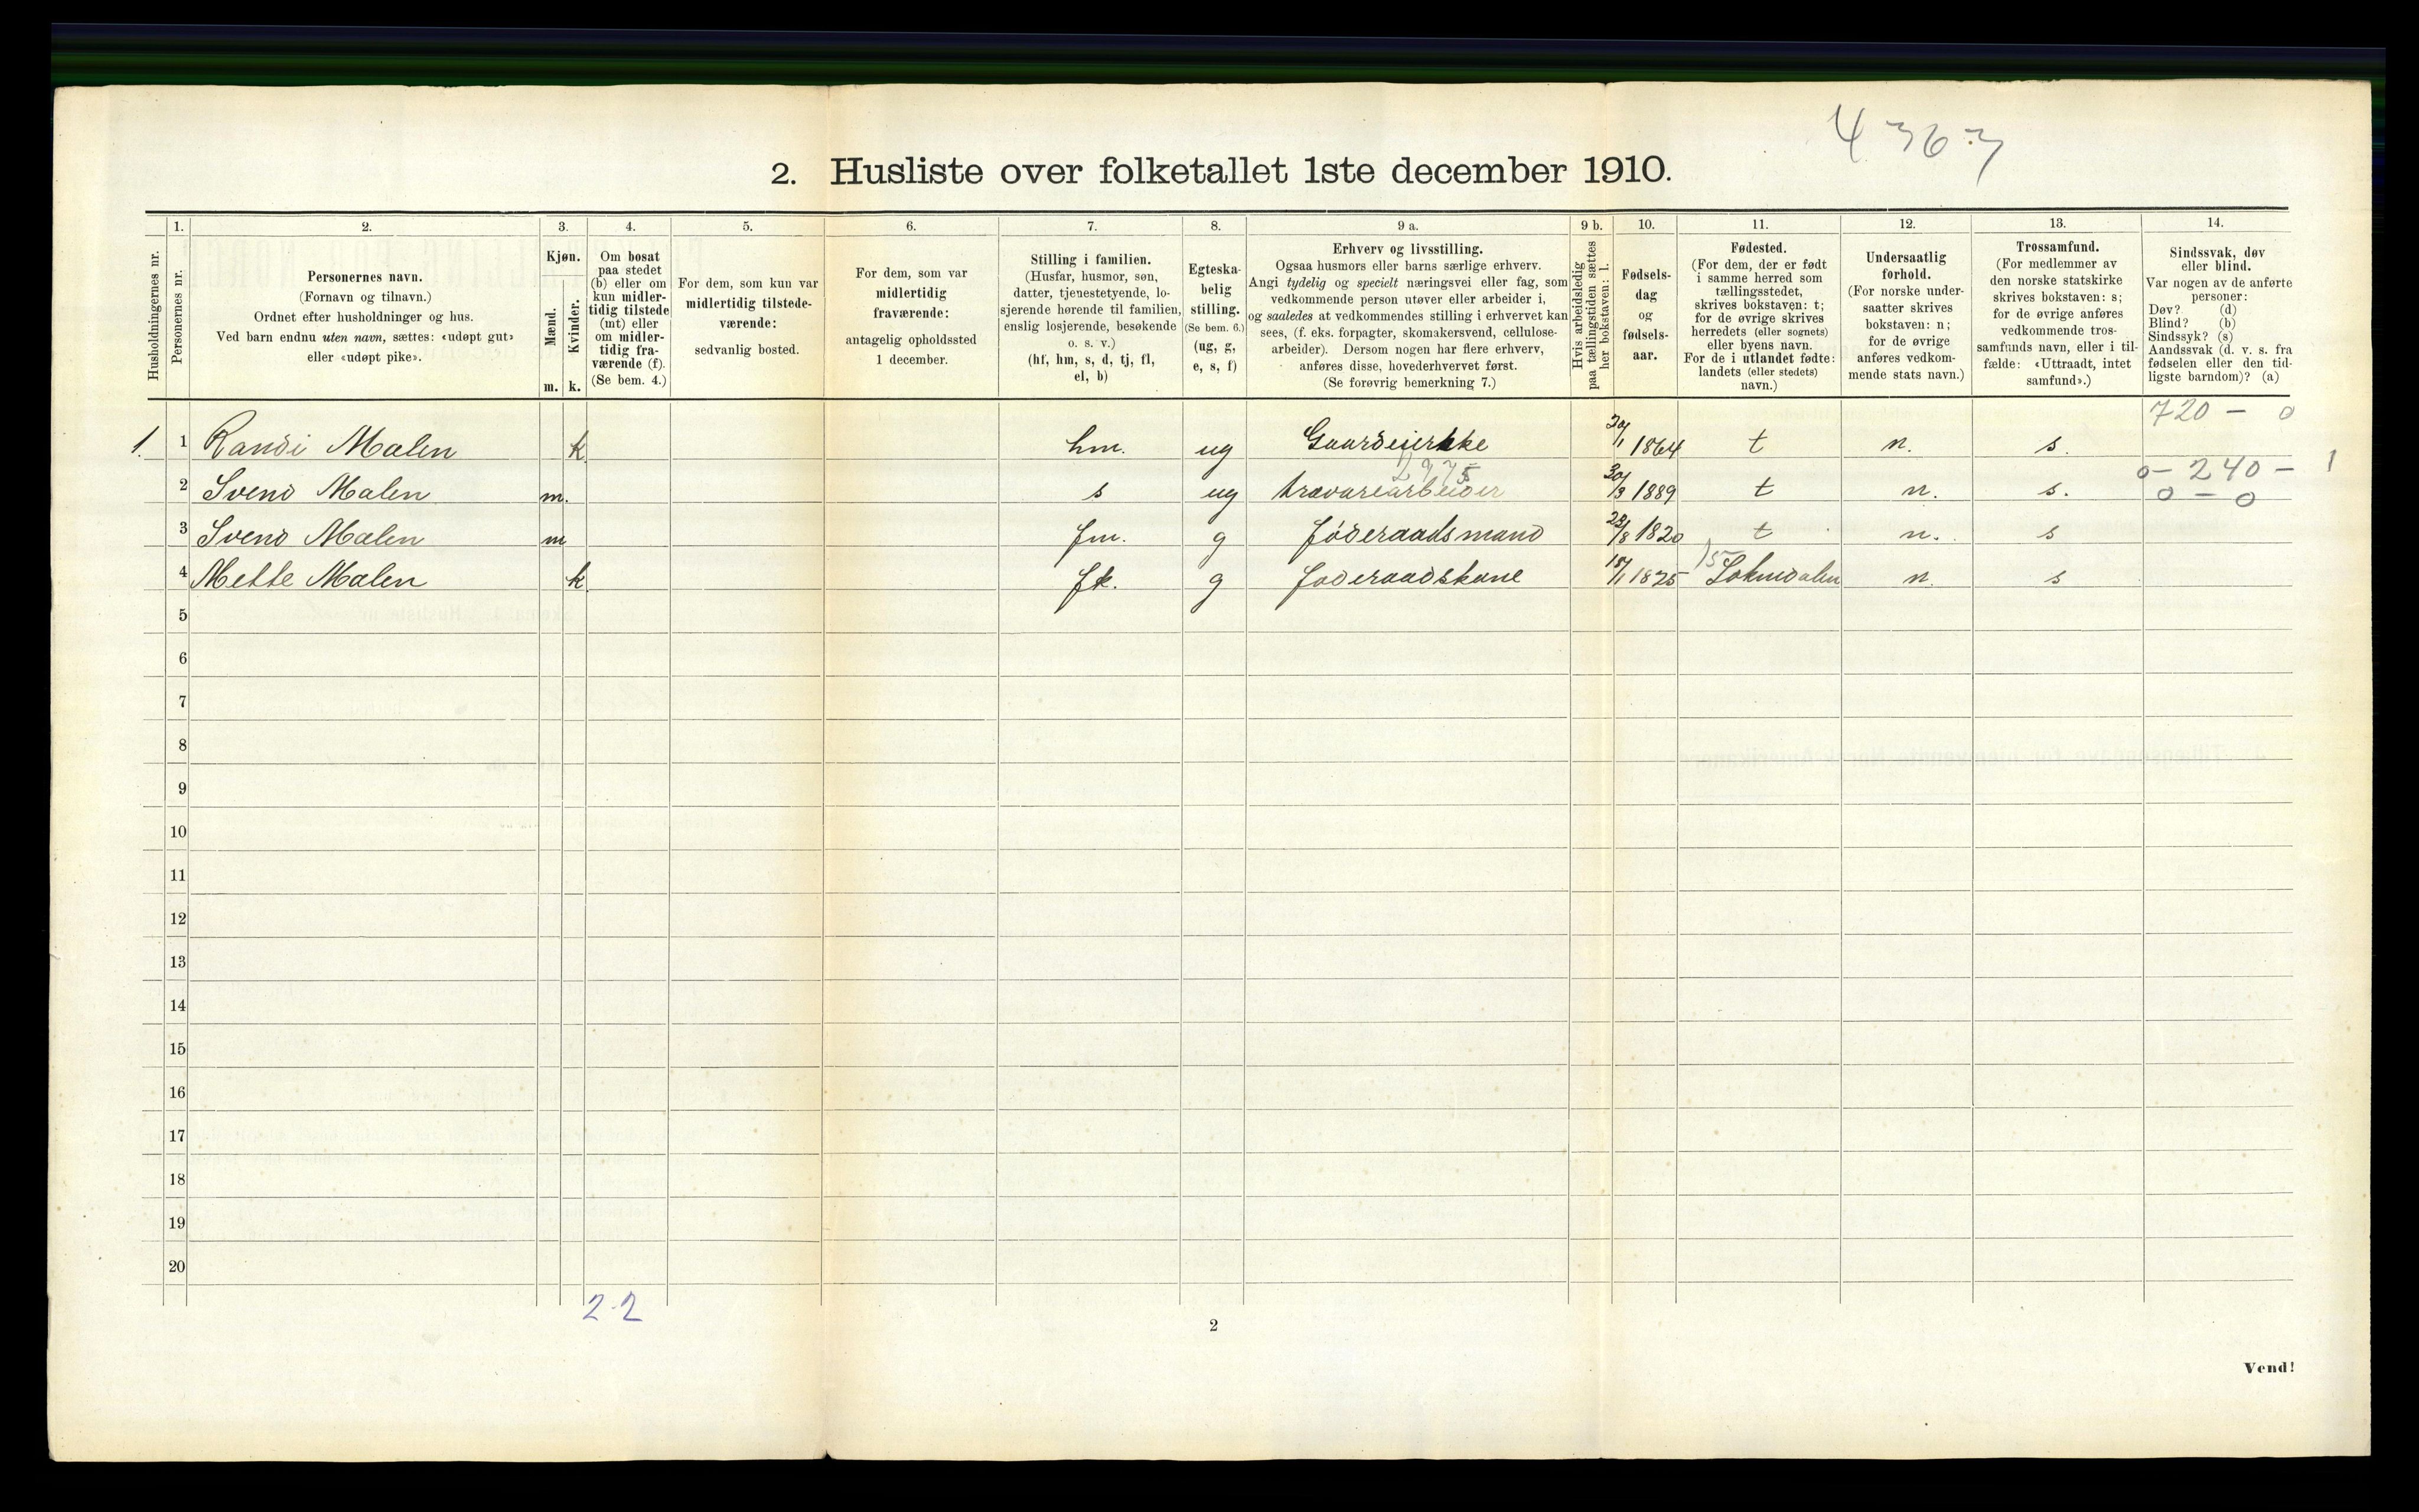 4363
2. Husliste over folketallet 1ste december 1910.
1. 2. 3. 4. 5. 6. 7. 8. 9 a. 9 b. 10. 11. 12. 13. 14.
Husholdningernes nr.
Personernes nr.
Personernes navn.
(Fornavn og tilnavn.)
Ordnet efter husholdninger og hus.
Ved barn endnu uten navn, sættes: «udøpt gut»
eller «udøpt pike».
Kjøn.
Mænd.
Kvinder.
m. k.
Om bosat
paa stedet
(b) eller om
kun midler-
tidig tilstede
(mt) eller
om midler-
tidig fra-
værende (f).
(Se bem. 4.)
For dem, som kun var
midlertidig tilstede-
værende:
sedvanlig bosted.
For dem, som var
midlertidig
fraværende:
antagelig opholdssted
1 december.
Stilling i familien.
(Husfar, husmor, søn,
datter, tjenestetyende, lo-
sjerende hørende til familien,
enslig losjerende, besøkende
o. s. v.)
(hf, hm, s, d, tj, fl,
el, b)
Egteska-
belig
stilling.
(Se bem. 6.)
(ug, g,
e, s, f)
Erhverv og livsstilling.
Ogsaa husmors eller barns særlige erhverv.
Angi tydelig og specielt næringsvei eller fag, som
vedkommende person utøver eller arbeider i,
og saaledes at vedkommendes stilling i erhvervet kan
sees, (f. eks. forpagter, skomakersvend, cellulose-
arbeider). Dersom nogen har flere erhverv,
anføres disse, hovederhvervet først.
(Se forøvrig bemerkning 7.)
Hvis arbeidsledig
paa tællingstiden sættes
her bokstaven: l.
Fødsels-
dag
og
fødsels-
aar.
Fødested.
(For dem, der er født
i samme herred som
tællingsstedet,
skrives bokstaven: t;
for de øvrige skrives
herredets (eller sognets)
eller byens navn.
For de i utlandet fødte:
landets (eller stedets)
navn.)
Undersaatlig
forhold.
(For norske under-
saatter skrives
bokstaven: n;
for de øvrige
anføres vedkom-
mende stats navn.)
Trossamfund.
(For medlemmer av
den norske statskirke
skrives bokstaven: s;
for de øvrige anføres
vedkommende tros-
samfunds navn, eller i til-
fælde: «Uttraadt, intet
samfund».)
Sindssvak, døv
eller blind.
Var nogen av de anførte
personer:
Døv? (d)
Blind? (b)
Sindssyk? (s)
Aandssvak (d. v. s. fra
fødselen eller den tid-
ligste barndom)? (a)
720 - 0
1. 1 Randi Malen k hm. ug Gaardeierske 30/1 1864 t n. s.
0 - 240 - 1
2 Svend Malen m. s ug trævarearbeider 30/3 1889 t n. s. 0 - 0
3 Svend Malen m fm. g føderaadsmand 28/8 1820 t n. s
15
4 Mette Malen k fk. g føderaadskone 15/1 1825 Soknedalen n. s
5
6
7
8
9
10
11
12
13
14
15
16
17
18
19
20
2-2
2
Vend!